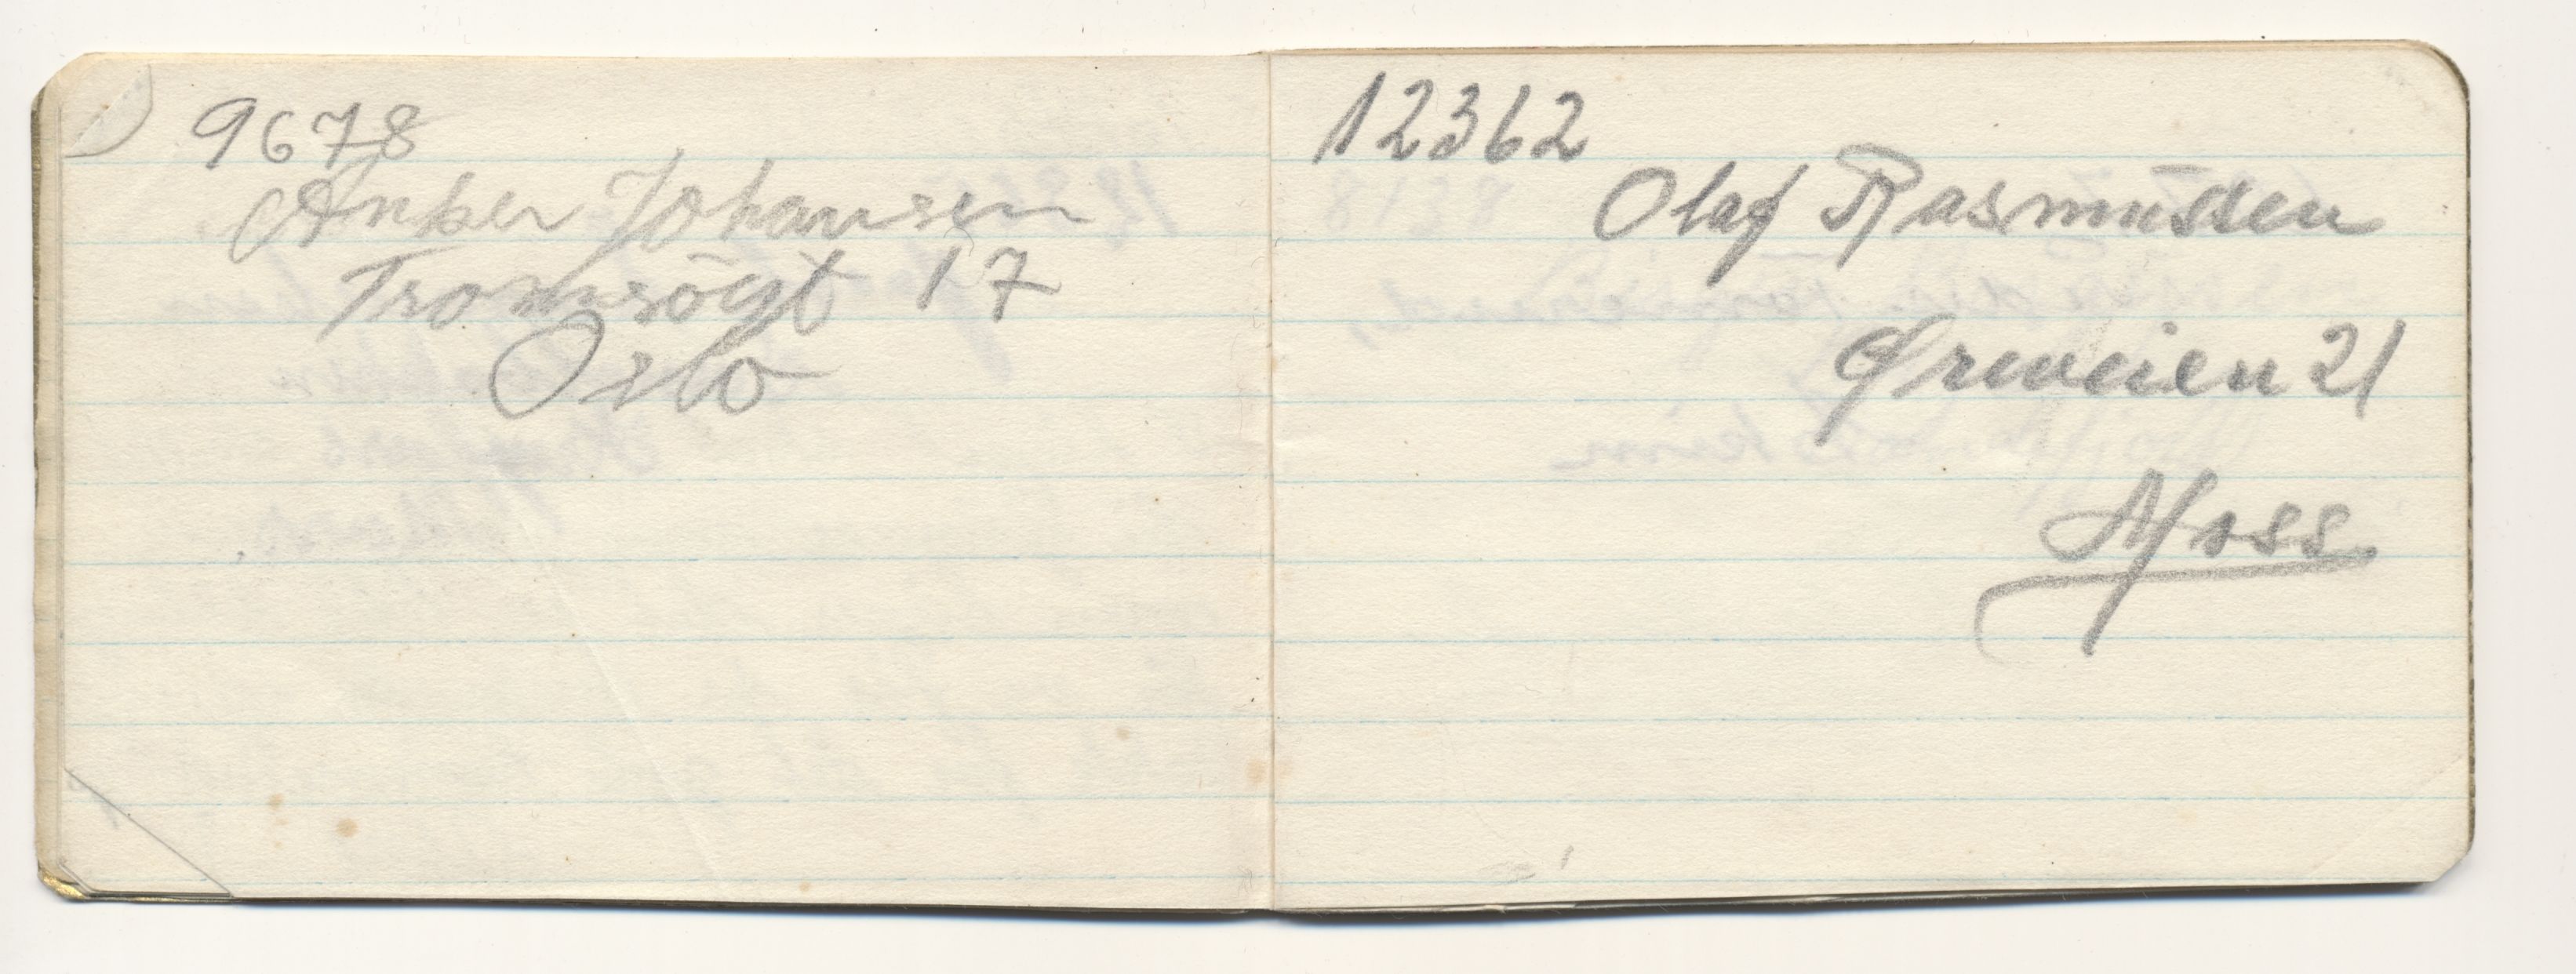 9678
Anker Johansen
Tromsögt 17
Oslo
12362
Olaf Rasmussen
Øreveien 21
Moss